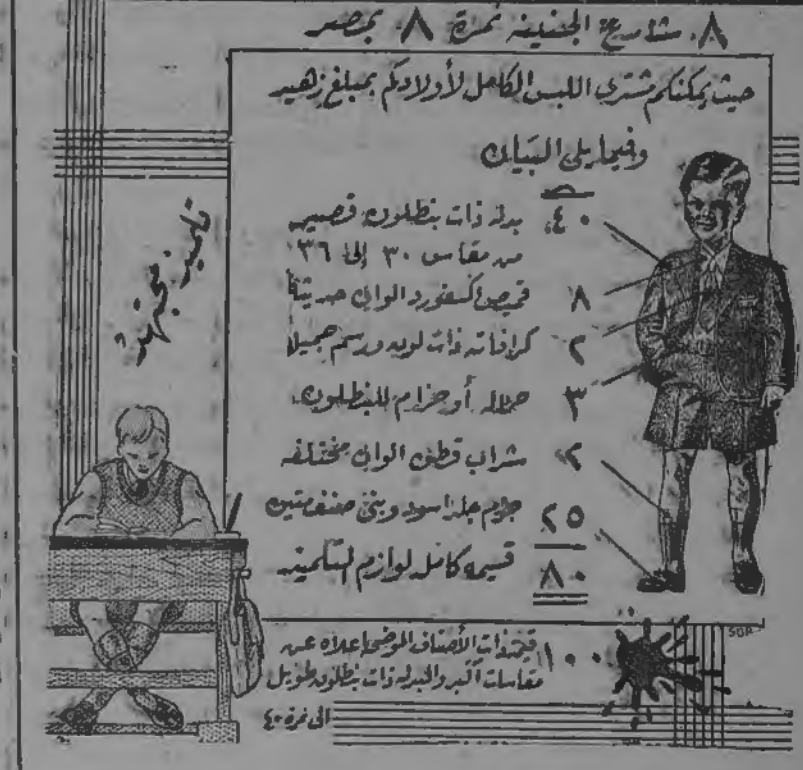 ٨. شارع الجنينه نمرة ٨. بمصر
حيث يمكنكم مشترى اللبس الكامل لأولادكم بمبلغ زهيد
وفيما يلى البيان
٤٠ بدله ذات بنطلون قصير
من مقاس ٣٠ إلى ٣٦
٨ قميص اكسفورد الوان حديثاً
٢ كرافاته ذات لون ورسم جميل
٣ حماله أو حزام للبنطلون
٢ شراب قطن الوان مختلفه
٢٥ جوزم جلد اسود وبنى صنف متين
٨٠ قسيمه كامل لوازم التلميذ
تلميذ مجتهد
١٠٠ قيمة ذات الأصناف الموضحه اعلاه عن
مقاسات أكبر والبدله ذات بنطلون طويل
الى نمرة ٤٠
SOP